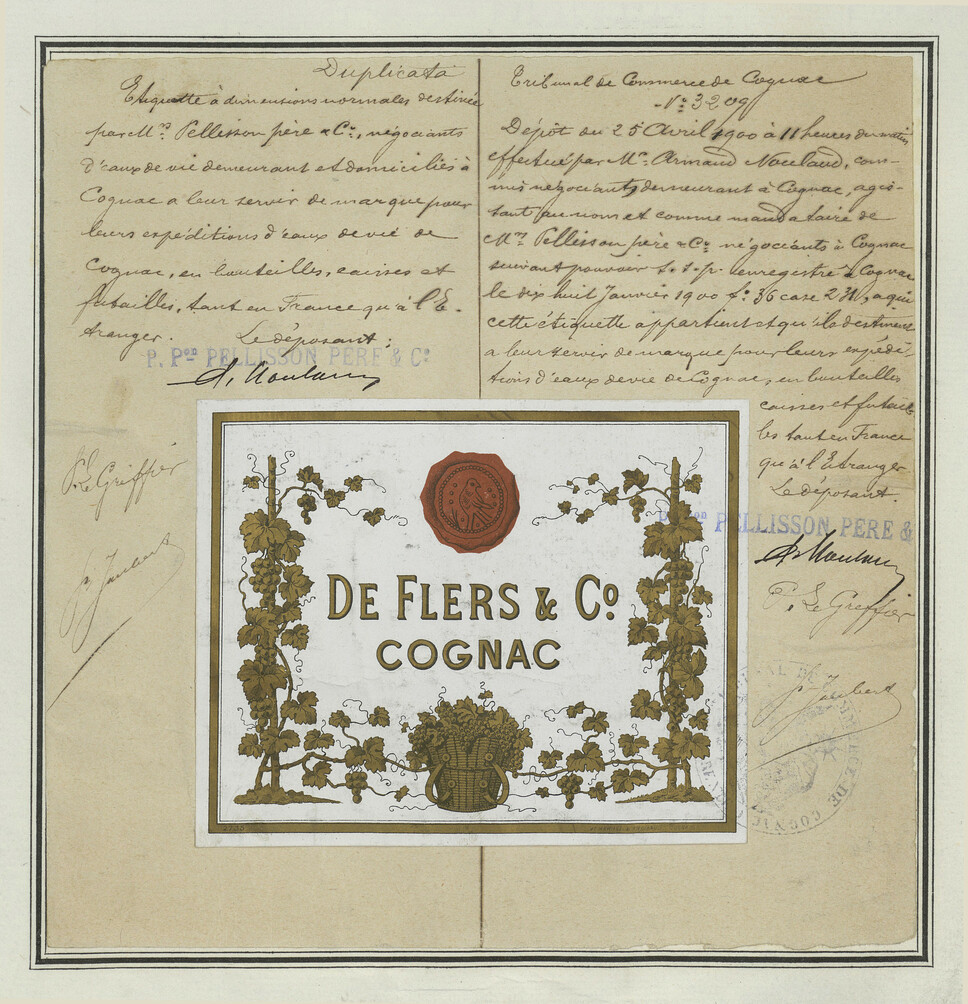 Duplicata
Etiquette à dimensions normales destinée
par Mrs Pellisson père & Cie, négociants
d'eaux de vie demeurant et domiciliés à
Cognac a leur servir de marque pour
leurs expéditions d'eaux de vie de
Cognac, en bouteilles, caisses et
futailles, tant en France qu'à l'E-
tranger. Le déposant;
P. Pon PELLISSON PÈRE & Co
P. Le Greffier
P. Jaubert
Tribunal de Commerce de Cognac
- No 3209
Dépôt du 25 Avril 1900 à 11 heures du matin
effectué par Mr Armand Noulaud, com-
mis négociant, demeurant à Cognac, agis-
sant au nom et comme mandataire de
Mrs Pellisson père & Cie négociants à Cognac
suivant pouvoir s.s.p. enregistré à Cognac
le dix huit Janvier 1900 fo 36 case 231, a qui
cette étiquette appartient et qu'ils destinent
a leur servir de marque pour leurs expédi-
tions d'eaux de vie de Cognac, en bouteilles
caisses et futail-
les tant en France
qu'à l'Etranger
Le déposant.
P. Pon PELLISSON PÈRE &
P. Le Greffier
P. Jaubert
DE FLERS & Co
COGNAC
COMMERCE DE COGNAC